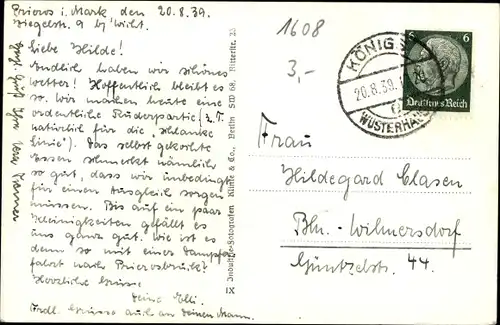 Prieros i. Mark den 20.8.39.
Ziegelstr. 9 b/ Wicht.
Liebe Hilde!
Endlich haben wir schönes
Wetter! Hoffentlich bleibt es
so. Wir machen heute eine
ordentliche Ruderpartie (z. T.
natürlich für die „schlanke
Linie"). Das selbst gekochte
Essen schmeckt nämlich
so gut, dass wir unbedingt
für einen Ausgleich sorgen
müssen. Bis auf ein paar
Kleinigkeiten gefällt es
uns ganz gut. Wie ist es
denn so mit einer Dampfer-
fahrt nach Prierosbrück?
Herzliche Grüsse
Deine Elli.
Frdl. Grüsse auch an Deinen Mann.
Gruß Ihr
Industrie-Fotografen Klinke & Co., Berlin SW 68, Ritterstr. 23
IX
1608
3,-
KÖNIGS
20.8.39.
WUSTERHAUSEN
6 6
Deutsches Reich
Frau
Hildegard Clasen
Bln.-Wilmersdorf
Güntzelstr. 44.